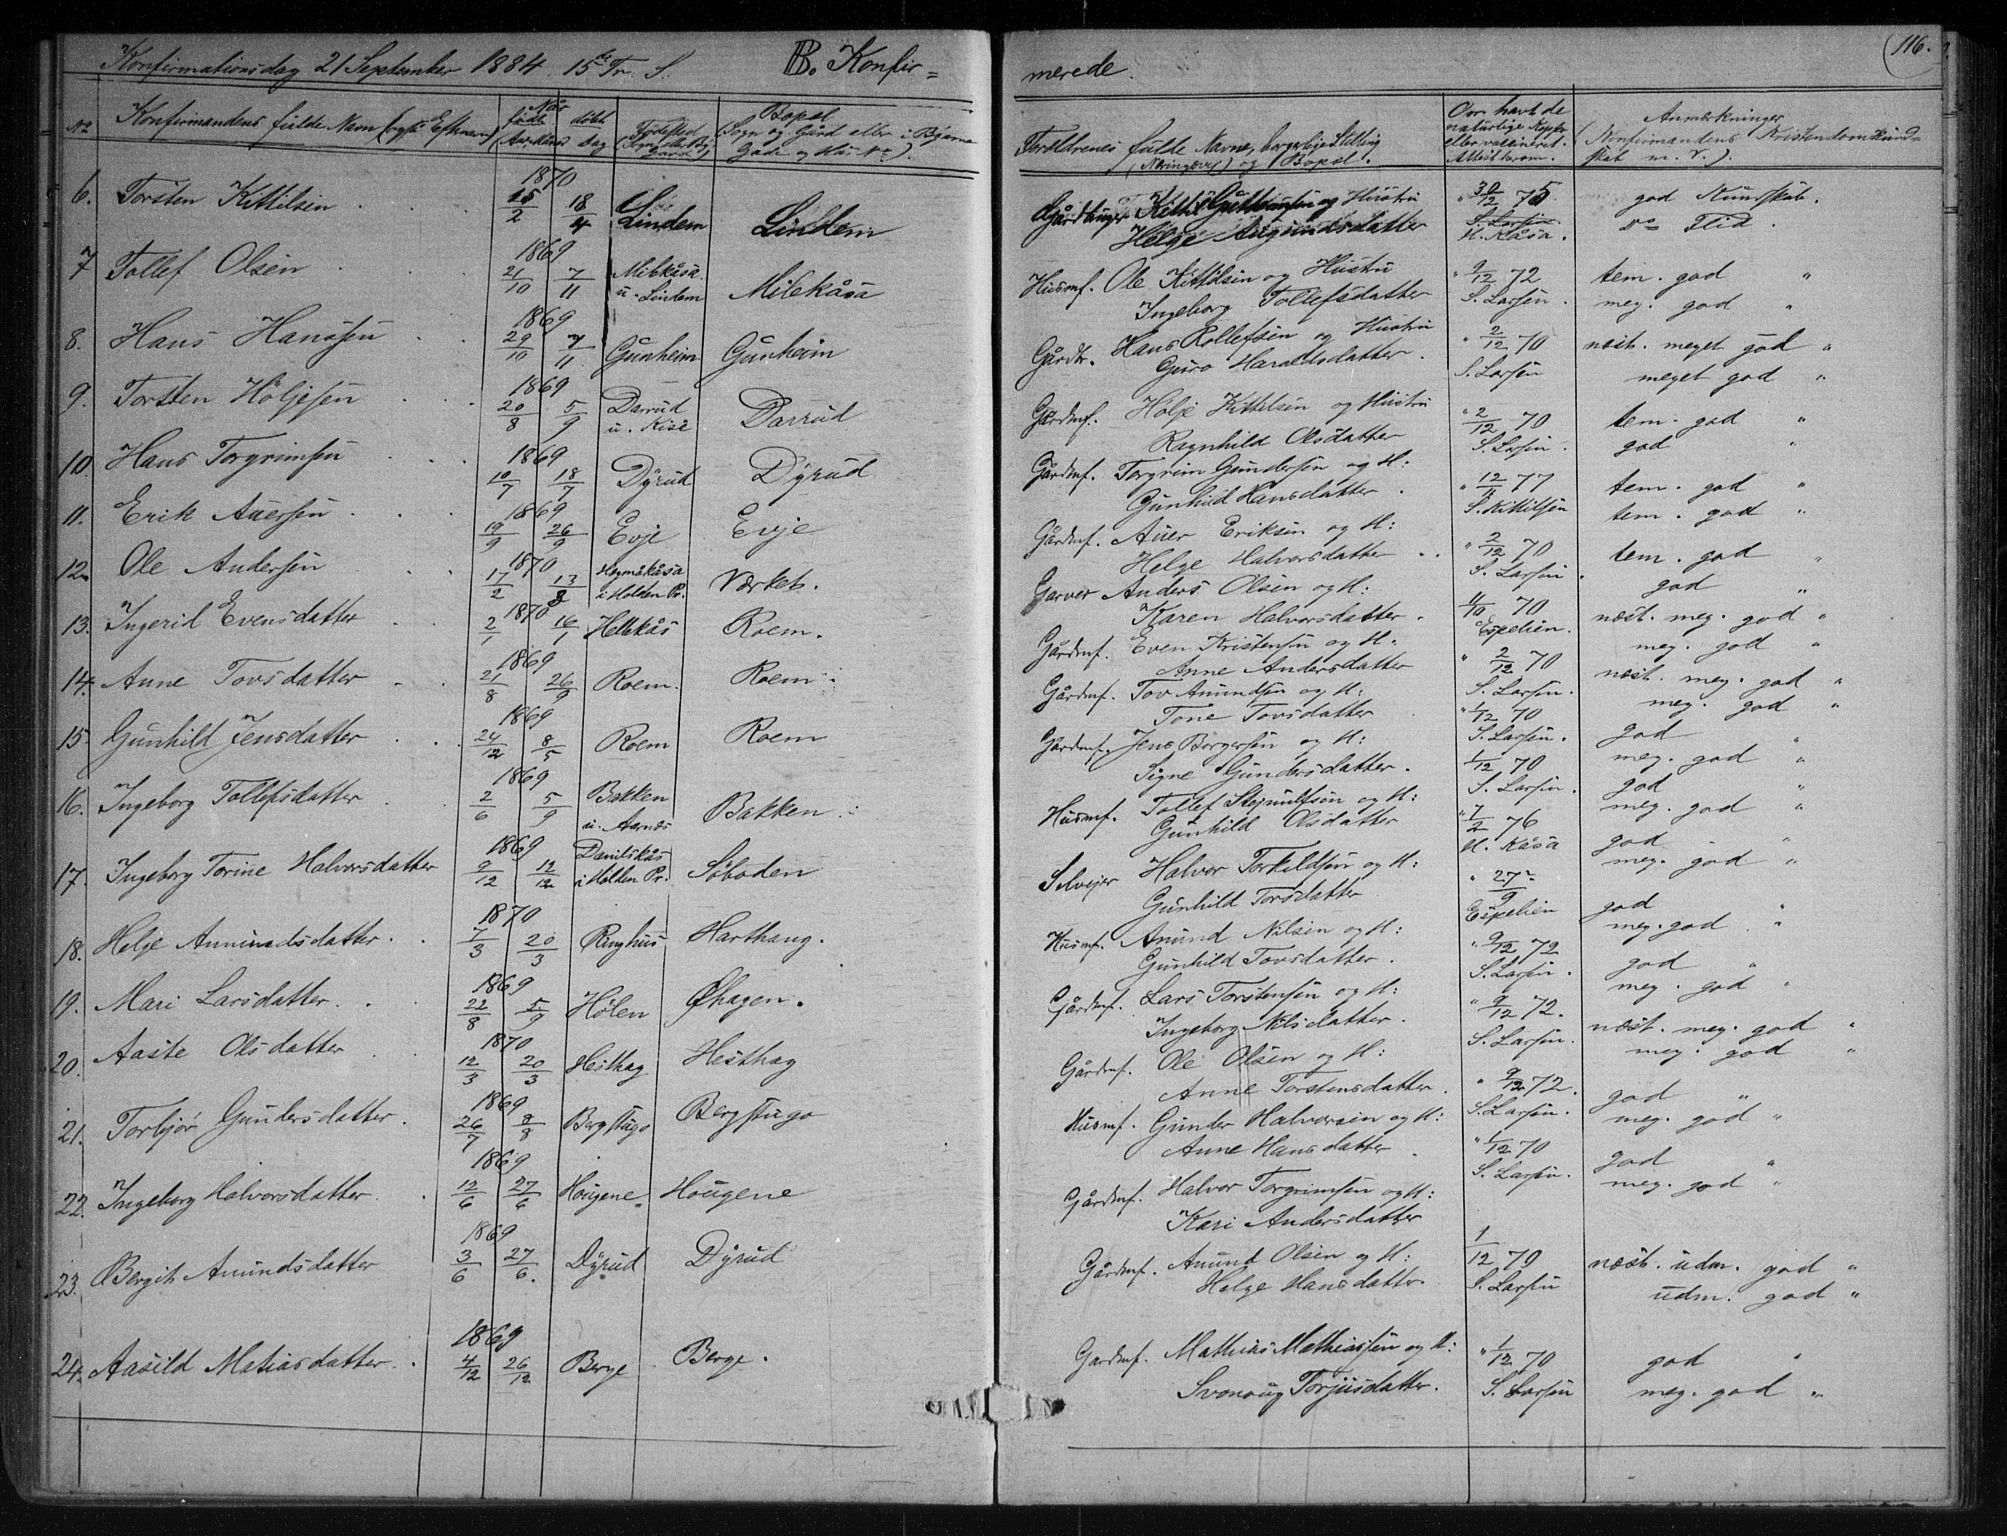 Konfirmationsdag 21 September 1884 15de Tr. S. B. Konfir=
merede.
116.
No
Konfirmandens fulde Navn
Når født
Aar
Dag
døbt
Dag
Fødested
Bopæl
Sogn og Gård eller i Byerne
Gade og Hus No).
Forældrenes fulde Navne, borgerlige Stilling
(Næringsvej) og Bopæl.
Om havt de
naturlige Kopper
eller vaccineret.
Anmærkninger
(Konfirmandens Kristendomskund-
skab m. v.).
6. Torsten Kittilsen 1870 15/2 18/4 Lindem Lindem
Kittil og Hustru
Helge Augundsdatter
30/12 75
S. Larsen
H. Kåsa.
god Kundskab.
do Flid.
7 Tollef Olsen 1869 21/10 7/11 Milekåsa
u. Lindem Milekåsa
Husmf. Ole Kittilsen og Hustru
Ingeborg Tollefsdatter
9/12 72
S. Larsen.
tem. god "
meg. god "
8. Hans Hanssen 1869 29/10 7/11 Gunheim Gunheim
Gårdbr. Hans Rollefsen og Hustru
Guro Haraldsdatter.
" 2/12 70
S. Larsen
næst. meget god "
meget god "
9. Torsten Höljesen 1869 20/8 5/9 Darrud
u. Kise Darrud
Gårdmf. Hölje Kittilsen og Hustru
Ragnhild Olsdatter
" 2/12 70
S. Larsen.
tem. god "
god "
10. Hans Torgrimsen 1869 10/7 18/7 Dyrud Dyrud
Gårdmf. Torgrim Gundersen og H:
Gunhild Hansdatter.
" 12/11 77
S. Kittilsen
tem. god "
tem. god "
11. Erik Auersen 1869 19/9 26/9 Evje Evje
Gårdmf. Auer Eriksen og H:
Helge Halvorsdatter
" 2/12 70
S. Larsen.
tem. god "
god "
12. Ole Andersen 1870 17/2 13/3
i Holden Pr. Værket.
Garver Anders Olsen og H:
Karen Halvorsdatter.
11/10 70
Espelien.
næst. meg. god "
meg. god "
13. Ingerid Evensdatter 1870 2/1 16/1 Hellekås Roem.
Gårdmf. Even Kristensen og H:
Anne Andersdatter
" 2/12 70
S. Larsen.
næst. meg. god "
meg. god "
14. Anne Tovsdatter 1869 21/8 26/9 Roem. Roem.
Gårdmf. Tov Amundsen og H:
Tone Tovsdatter
" 1/12 70
S. Larsen.
god "
meg. god "
15. Gunhild Jensdatter 1869 24/12 8/5 Roem Roem
Gårdmf. Jens Borgersen og H:
Signe Gundersdatter.
1/12 70
S. Larsen.
god "
meg. god "
16. Ingeborg Tollefsdatter 1869 2/6 5/9 Bakken
u. Aarnes Bakken
Husmf. Tollef Stejnulfsen og H:
Gunhild Olsdatter
" 7/2 76
H. Kåsa
god "
meg. god "
17. Ingeborg Torine Halvorsdatter 1869 9/12 12/12
i Holden Pr. Söboden
Selvejer Halvor Torkildsen og H:
Gunhild Torsdatter
" 27/9
Espelien
god "
meg. god "
18. Helge Amundsdatter. 1870 7/3 20/3 Ringhus Harthaug.
Husmf. Amund Nilsen og H:
Gunhild Tovsdatter.
" 9/12 72
S. Larsen.
god "
meg. god "
19. Mari Larsdatter. 1869 22/8 5/9 Hölen Øhagen.
Gårdmf. Lars Torstensen og H:
Ingeborg Nilsdatter.
" 9/12 72.
S. Larsen.
næst. meg. god "
meg. god "
20. Aaste Olsdatter 1870 12/3 20/3 Hesthag Hesthag
Gårdmf. Ole Olsen og H:
Anne Torstensdatter.
" 9/12 72.
S. Larsen.
god "
meg. god "
21. Torbjør Gundersdatter. 1869 26/7 8/8 Bergstugo Bergstugo
Husmf. Gunder Halvorsen og H:
Anne Hansdatter.
" 1/12 70
S. Larsen.
god "
meg. god "
22. Ingeborg Halvorsdatter. 1869 12/6 27/6 Hougene Hougene
Gårdmf. Halvor Torgrimsen og H:
Kari Andersdatter
23. Bergit Amundsdatter 1869 3/6 27/6. Dyrud Dyrud
Gårdmf. Amund Olsen og H:
Helge Hansdatter.
1/12 70
S. Larsen
næst. udm. god "
udm. god "
24. Aasild Matiasdatter. 1869 4/12 26/12 Berge Berge.
Gårdmf. Mathias Mathiassen og H:
Svonoug Torjusdatter.
" 1/12 70
S. Larsen
god "
meg. god "